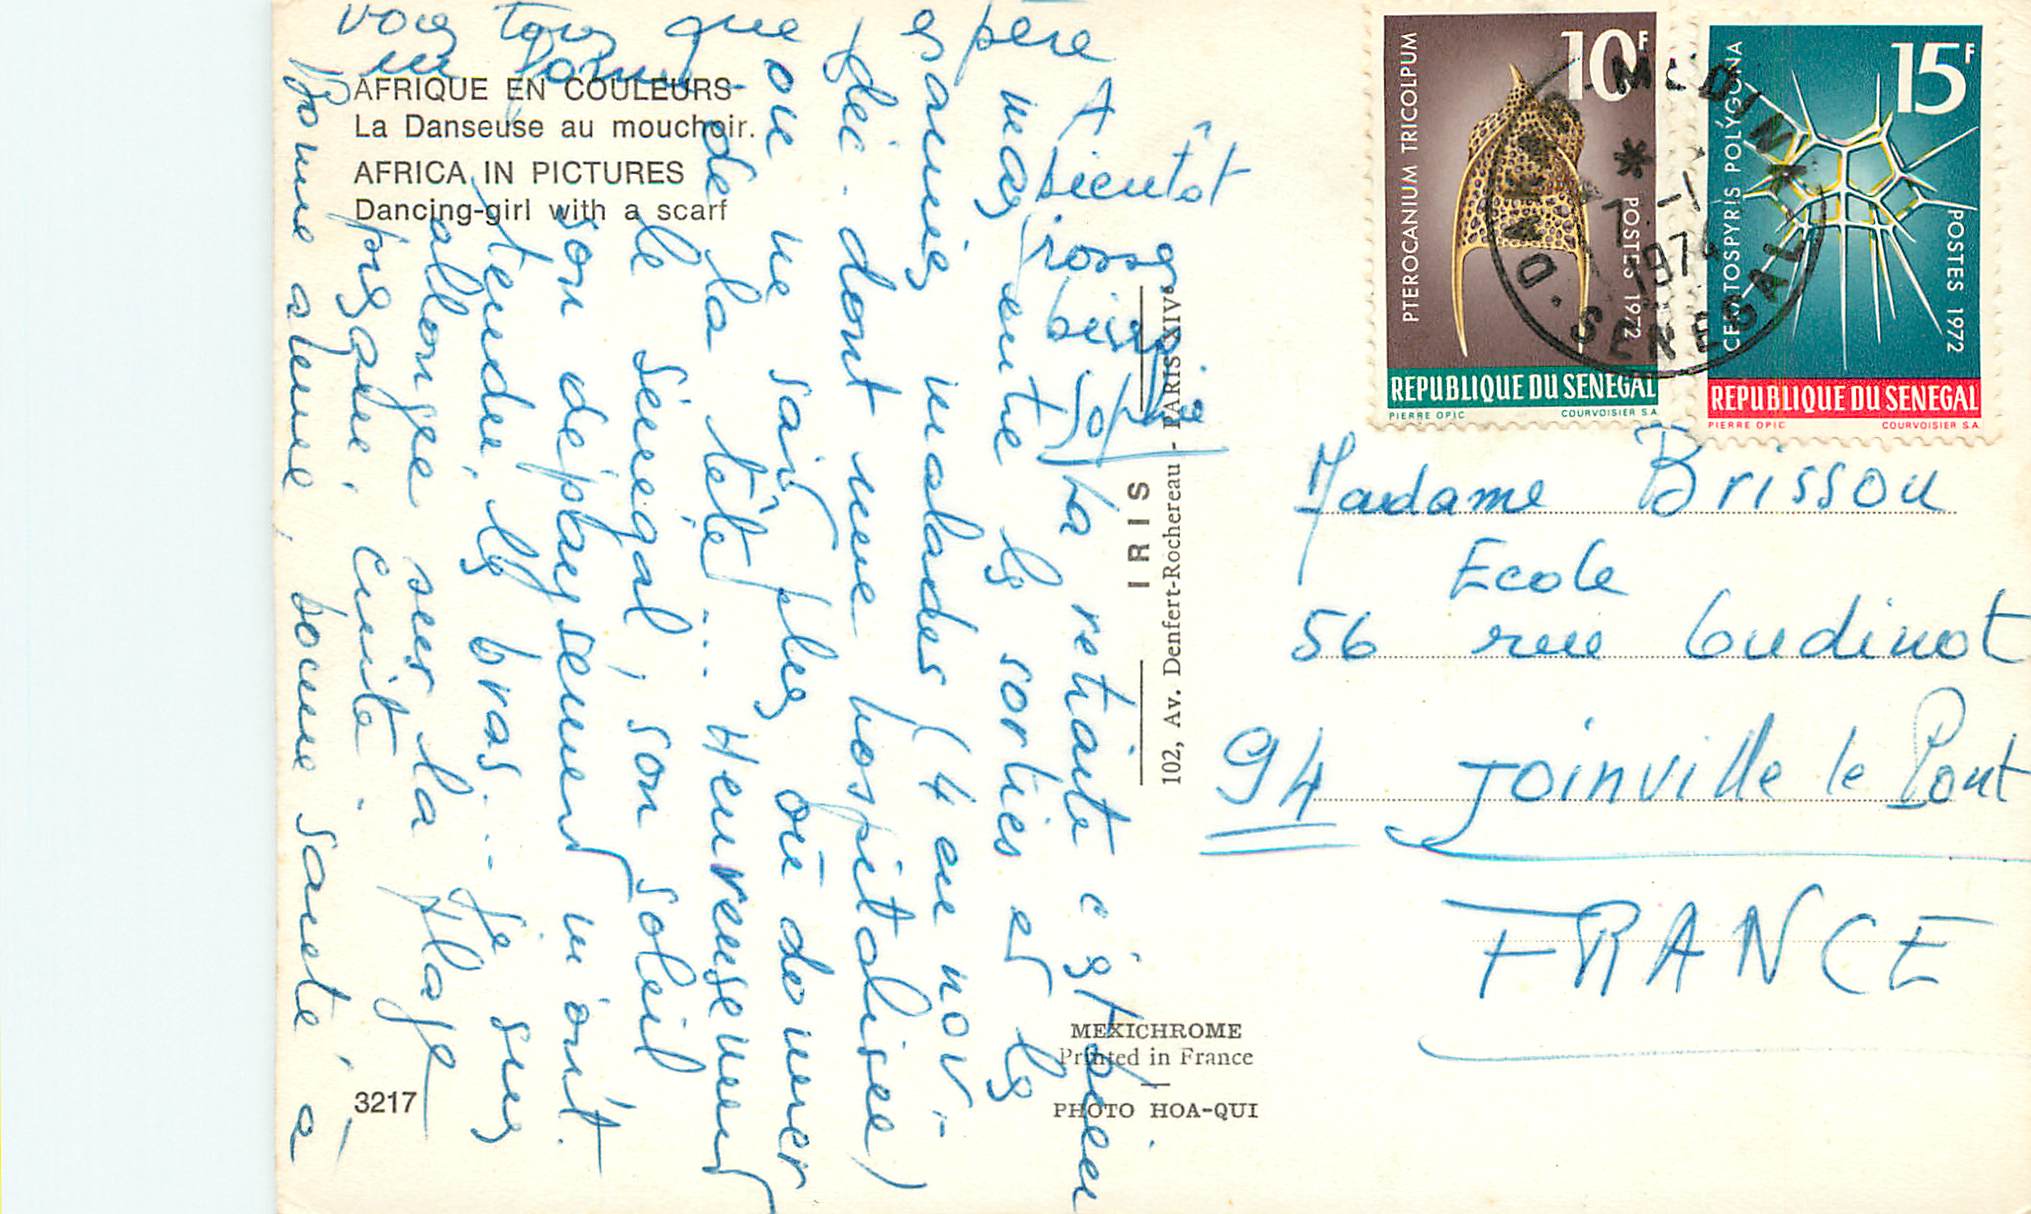 AFRIQUE EN COULEURS
La Danseuse au mouchoir.
AFRICA IN PICTURES
Dancing-girl with a scarf
La retraite c'est bien
mais entre les sorties et les
malades (4 en nov-
déc. dont une hospitalisée)
on ne sait plus où donner
de la tête... Heureusement
le Sénégal, son soleil
son dépaysement m'ont
tendu les bras... je suis
allongée sur la plage
presque cuite.
bonne année, bonne santé, à
vous tous que j'espère
en forme
A bientôt
grosses
bises
Sophie
IRIS
102, Av. Denfert-Rochereau - PARIS XIVe
MEXICHROME
Printed in France
PHOTO HOA-QUI
3217
10F
PTEROCANIUM TRICOLPUM
POSTES 1972
REPUBLIQUE DU SENEGAL
PIERRE OPIC COURVOISIER S.A.
15F
CERATOSPYRIS POLYGONA
POSTES 1972
REPUBLIQUE DU SENEGAL
PIERRE OPIC COURVOISIER S.A.
DAKAR-MEDINA
7 -1
1974
SENEGAL
Madame Brisson
Ecole
56 rue Oudinot
94 Joinville le Pont
FRANCE